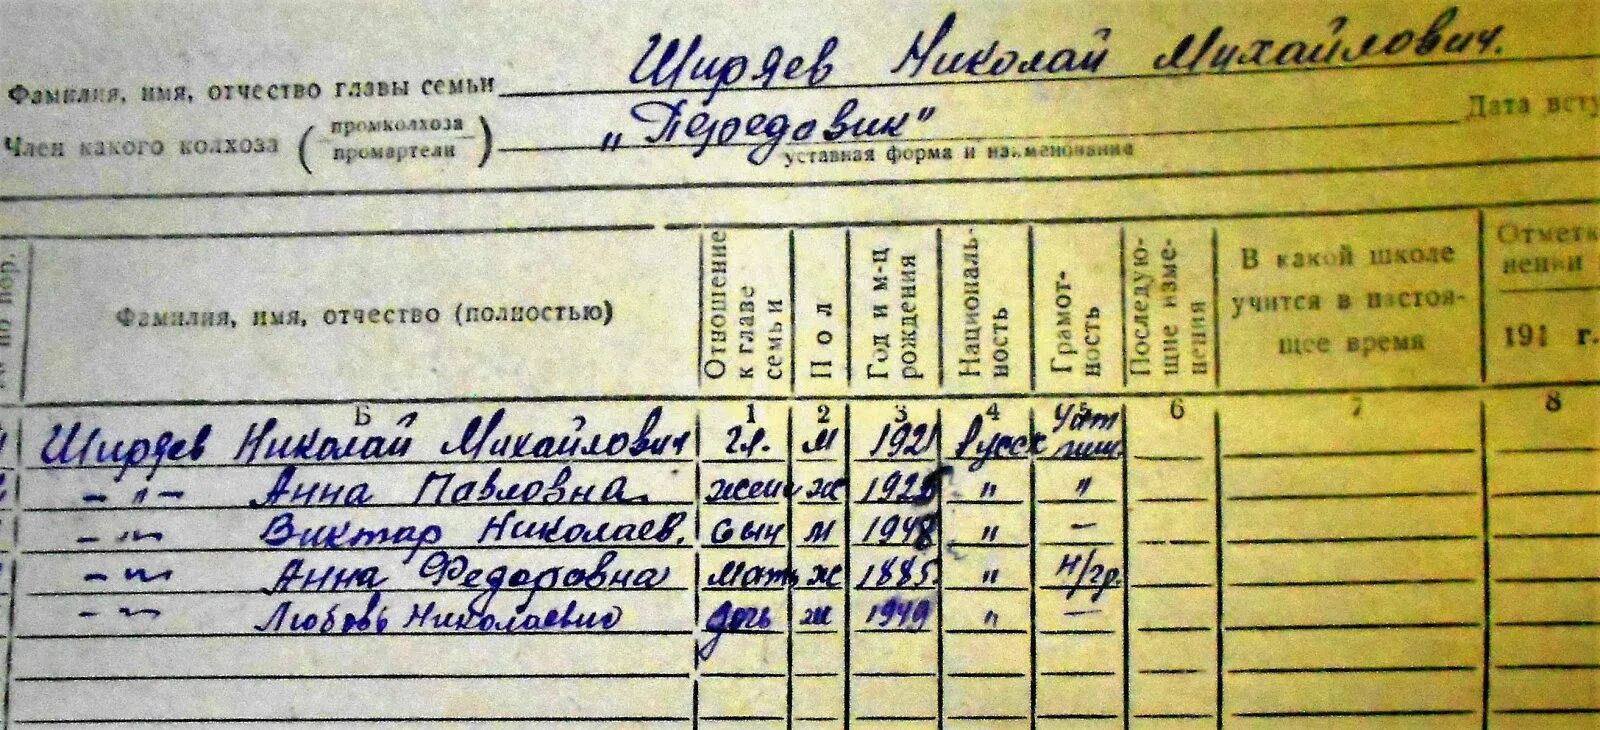 Ширяев Николай Михайлович.
Фамилия, имя, отчество главы семьи
Член какого колхоза (промколхоза промартели) „Передовик" Дата всту
уставная форма и наименование
№ по пор. Фамилия, имя, отчество (полностью) Отношение к главе семьи Пол Год и м-ц рождения Национальность Грамотность Последующие изменения В какой школе учится в настоящее время Отметк нении 191 г.
Б 1 2 3 4 5 6 7 8
Ширяев Николай Михайлович гл. м 1921 Русск
– „ – Анна Павловна жена ж 192 „ „
– „ – Виктар Николаев. сын м 1948 „ –
– „ – Анна Федоровна мать ж 1885 „ н/гр.
– „ – Любовь Николаевна дочь ж 1949 „ –